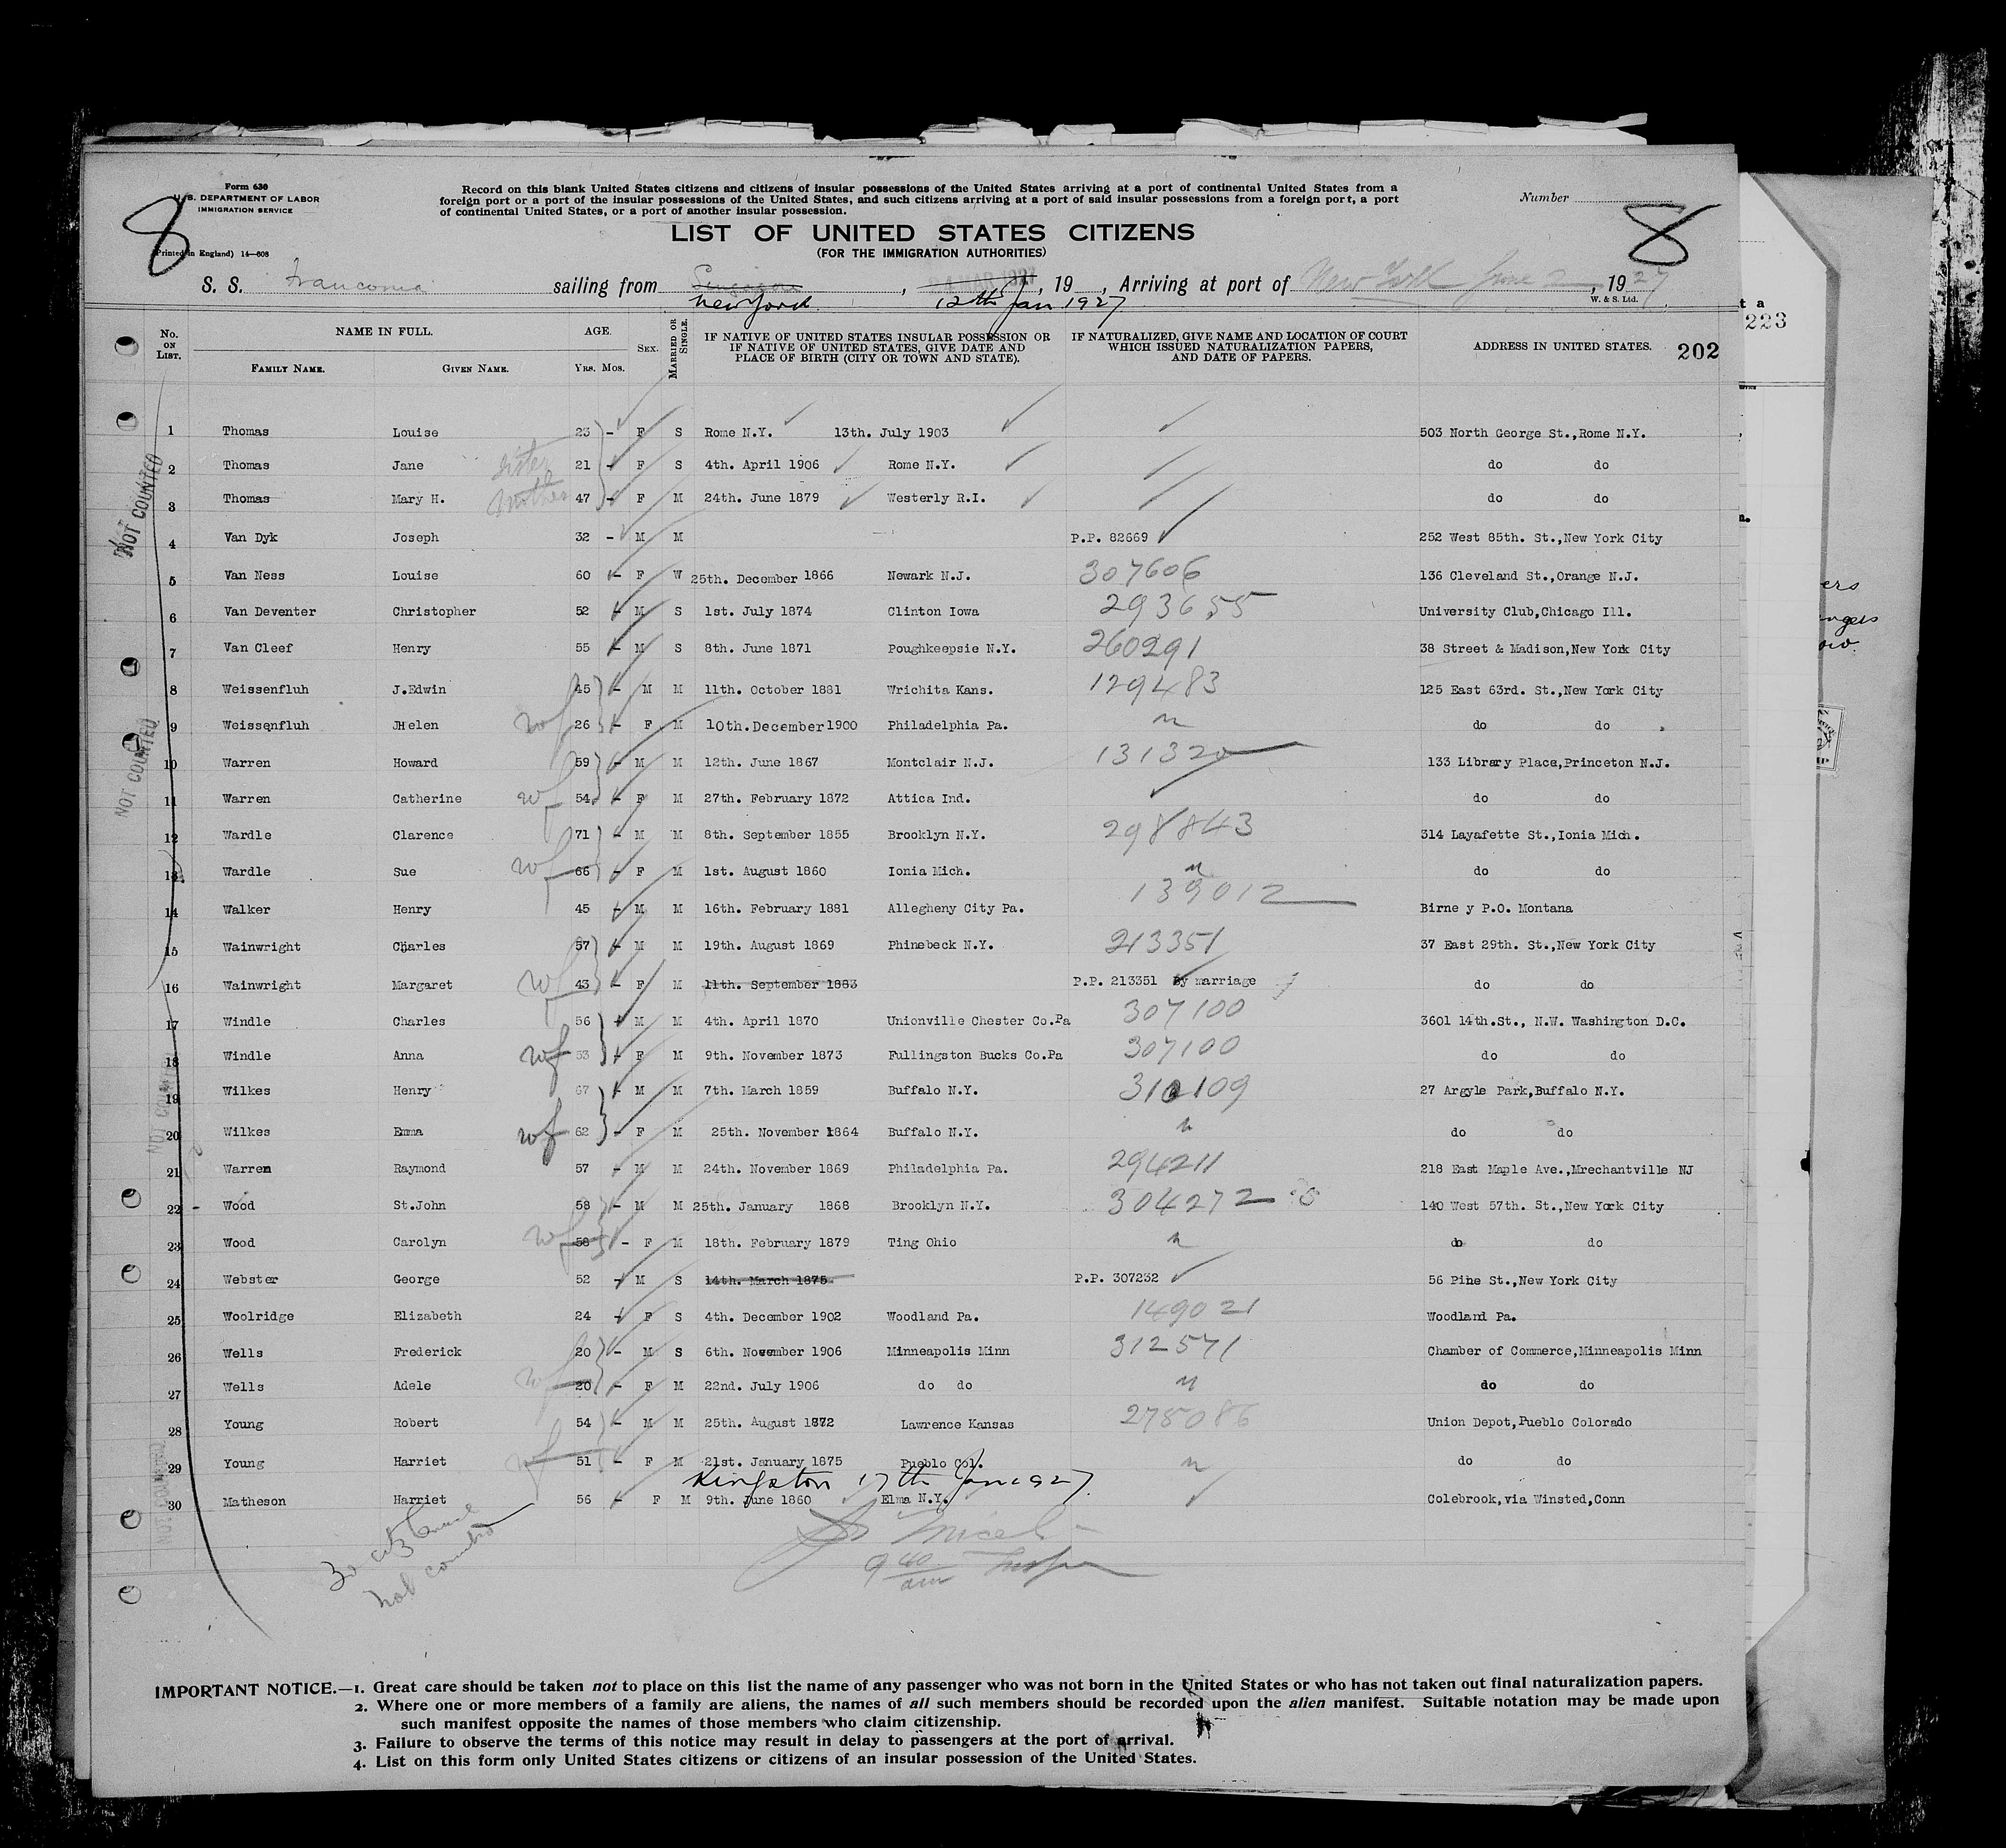 Form 630
U. S. DEPARTMENT OF LABOR
IMMIGRATION SERVICE
(Printed in England) 14—608
8
Record on this blank United States citizens and citizens of insular possessions of the United States arriving at a port of continental United States from a
foreign port or a port of the insular possessions of the United States, and such citizens arriving at a port of said insular possessions from a foreign port, a port
of continental United States, or a port of another insular possession.
Number
8
LIST OF UNITED STATES CITIZENS
(FOR THE IMMIGRATION AUTHORITIES)
S. S. Franconia sailing from Singapore, 24 MAR 1927, 19 , Arriving at port of New York June 2, 1927
New York 12th Jan 1927
W. & S. Ltd.
No. ON LIST. NAME IN FULL. FAMILY NAME. GIVEN NAME. AGE. Yrs. Mos. SEX. MARRIED OR SINGLE. IF NATIVE OF UNITED STATES INSULAR POSSESSION OR IF NATIVE OF UNITED STATES, GIVE DATE AND PLACE OF BIRTH (CITY OR TOWN AND STATE). IF NATURALIZED, GIVE NAME AND LOCATION OF COURT WHICH ISSUED NATURALIZATION PAPERS, AND DATE OF PAPERS. ADDRESS IN UNITED STATES. 202
1 Thomas Louise 23 - F S Rome N.Y. 13th. July 1903 503 North George St.,Rome N.Y.
2 Thomas Jane sister 21 - F S 4th. April 1906 Rome N.Y. do do
3 Thomas Mary H. mother 47 - F M 24th. June 1879 Westerly R.I. do do
4 Van Dyk Joseph 32 - M M P.P. 82669 252 West 85th. St.,New York City
5 Van Ness Louise 60 - F W 25th. December 1866 Newark N.J. 307606 136 Cleveland St.,Orange N.J.
6 Van Deventer Christopher 52 - M S 1st. July 1874 Clinton Iowa 293655 University Club,Chicago Ill.
7 Van Cleef Henry 55 - M S 8th. June 1871 Poughkeepsie N.Y. 260291 38 Street & Madison,New York City
8 Weissenfluh J.Edwin 45 - M M 11th. October 1881 Wrichita Kans. 129483 125 East 63rd. St.,New York City
9 Weissenfluh JHelen wf 26 - F M 10th.December 1900 Philadelphia Pa. " do do
10 Warren Howard 59 - M M 12th. June 1867 Montclair N.J. 131320 133 Library Place,Princeton N.J.
11 Warren Catherine wf 54 - F M 27th. February 1872 Attica Ind. do do
12 Wardle Clarence 71 - M M 8th. September 1855 Brooklyn N.Y. 298843 314 Layafette St.,Ionia Mich.
13 Wardle Sue wf 66 - F M 1st. August 1860 Ionia Mich. " do do
14 Walker Henry 45 - M M 16th. February 1881 Allegheny City Pa. 139012 Birne y P.O. Montana
15 Wainwright Charles 57 - M M 19th. August 1869 Phinebeck N.Y. 213351 37 East 29th. St.,New York City
16 Wainwright Margaret wf 43 - F M 11th. September 1883 P.P. 213351 By marriage do do
17 Windle Charles 56 - M M 4th. April 1870 Unionville Chester Co.Pa 307100 3601 14th.St., N.W. Washington D.C.
18 Windle Anna wf 53 - F M 9th. November 1873 Fullingston Bucks Co.Pa 307100 do do
19 Wilkes Henry 67 - M M 7th. March 1859 Buffalo N.Y. 310109 27 Argyle Park,Buffalo N.Y.
20 Wilkes Emma wf 62 - F M 25th. November 1864 Buffalo N.Y. " do do
21 Warren Raymond 57 - M M 24th. November 1869 Philadelphia Pa. 294211 218 East Maple Ave.,Mrechantville NJ
22 - Wood St.John 58 - M M 25th. January 1868 Brooklyn N.Y. 304272 140 West 57th. St.,New York City
23 Wood Carolyn wf 58 - F M 18th. February 1879 Ting Ohio " do do
24 Webster George 52 - M S 14th. March 1875 P.P. 307232 56 Pine St.,New York City
25 Woolridge Elizabeth 24 - F S 4th. December 1902 Woodland Pa. 149021 Woodland Pa.
26 Wells Frederick 20 - M S 6th. November 1906 Minneapolis Minn 312571 Chamber of Commerce,Minneapolis Minn
27 Wells Adele wf 20 - F M 22nd. July 1906 do do " do do
28 Young Robert 54 - M M 25th. August 1872 Lawrence Kansas 275086 Union Depot,Pueblo Colorado
29 Young Harriet wf 51 - F M 21st. January 1875 Pueblo Col. " do do
Kingston 17th Jan 1927.
30 Matheson Harriet 56 - F M 9th. June 1860 Elma N.Y. Colebrook,via Winsted,Conn
NOT COUNTED
NOT COUNTED
NOT COUNTED
NOT COUNTED
30 citz
not
9 40 am
IMPORTANT NOTICE.—1. Great care should be taken not to place on this list the name of any passenger who was not born in the United States or who has not taken out final naturalization papers.
2. Where one or more members of a family are aliens, the names of all such members should be recorded upon the alien manifest. Suitable notation may be made upon
such manifest opposite the names of those members who claim citizenship.
3. Failure to observe the terms of this notice may result in delay to passengers at the port of arrival.
4. List on this form only United States citizens or citizens of an insular possession of the United States.
t a
223